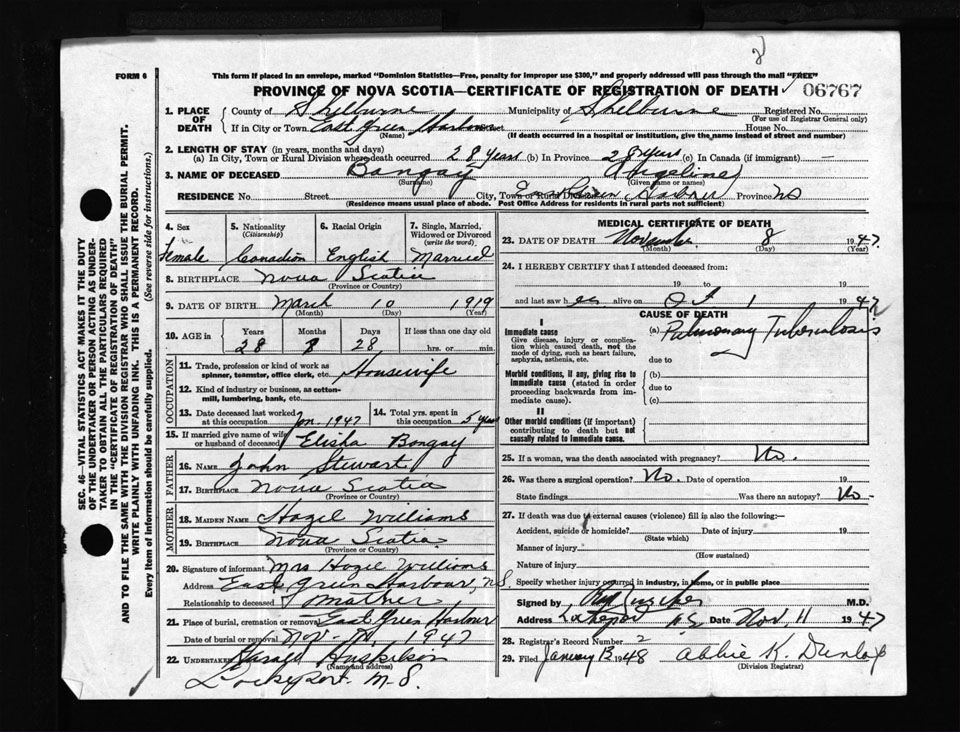 FORM 6
This form if placed in an envelope, marked "Dominion Statistics—Free, penalty for improper use $300," and properly addressed will pass through the mail "FREE"
PROVINCE OF NOVA SCOTIA—CERTIFICATE OF REGISTRATION OF DEATH
06767
1. PLACE OF DEATH
County of Shelburne Municipality of Shelburne Registered No.
(For use of Registrar General only)
If in City or Town East Green Harbour House No.
(Name) (If death occurred in a hospital or institution, give the name instead of street and number)
2. LENGTH OF STAY (in years, months and days)
(a) In City, Town or Rural Division where death occurred 28 years (b) In Province 28 years (c) In Canada (if immigrant) —
3. NAME OF DECEASED Bangay Angeline
(Surname) (Given name or names)
RESIDENCE No. Street City, Town or Rural Division East Green Harbour Province NS
(Residence means usual place of abode. Post Office Address for residents in rural parts not sufficient)
4. Sex Female
5. Nationality (Citizenship) Canadian
6. Racial Origin English
7. Single, Married, Widowed or Divorced (write the word) Married
8. BIRTHPLACE Nova Scotia
(Province or Country)
9. DATE OF BIRTH March 10 1919
(Month) (Day) (Year)
10. AGE in Years Months Days If less than one day old
28 8 28 hrs. or min.
OCCUPATION
11. Trade, profession or kind of work as spinner, teamster, office clerk, etc. Housewife
12. Kind of industry or business, as cotton-mill, lumbering, bank, etc.
13. Date deceased last worked at this occupation Jan. 1947
14. Total yrs. spent in this occupation 5 years
15. If married give name of wife or husband of deceased Elisha Bangay
FATHER
16. NAME John Stewart
17. BIRTHPLACE Nova Scotia
(Province or Country)
MOTHER
18. MAIDEN NAME Hazil Williams
19. BIRTHPLACE Nova Scotia
(Province or Country)
20. Signature of informant Mrs Hozie Williams
Address East Green Harbour, NS
Relationship to deceased Mother
21. Place of burial, cremation or removal East Green Harbour
Date of burial or removal Nov. 1947
22. UNDERTAKER
(Name and address)
Lockeport N.S.
MEDICAL CERTIFICATE OF DEATH
23. DATE OF DEATH November 8 1947
(Month) (Day) (Year)
24. I HEREBY CERTIFY that I attended deceased from:
19 to 19
and last saw her alive on Oct 1 1947
CAUSE OF DEATH
I
Immediate cause
Give disease, injury or complication which caused death, not the mode of dying, such as heart failure, asphyxia, asthenia, etc.
(a) Pulmonary Tuberculosis
due to
Morbid conditions, if any, giving rise to immediate cause (stated in order proceeding backwards from immediate cause).
(b)
due to
(c)
II
Other morbid conditions (if important) contributing to death but not causally related to immediate cause.
25. If a woman, was the death associated with pregnancy? No.
26. Was there a surgical operation? No. Date of operation 19
State findings Was there an autopsy? No -
27. If death was due to external causes (violence) fill in also the following:—
Accident, suicide or homicide? Date of injury 19
(State which)
Manner of injury
(How sustained)
Nature of injury
Specify whether injury occurred in industry, in home, or in public place
Signed by M.D.
Address N.S. Date Nov. 11 1947
28. Registrar's Record Number 2
29. Filed January 13 1948 Abbie K. Dunlap
(Division Registrar)
SEC. 46—VITAL STATISTICS ACT MAKES IT THE DUTY
OF THE UNDERTAKER OR PERSON ACTING AS UNDER-
TAKER TO OBTAIN ALL THE PARTICULARS REQUIRED
IN THE "CERTIFICATE OF REGISTRATION OF DEATH"
AND TO FILE THE SAME WITH THE DIVISION REGISTRAR WHO SHALL ISSUE THE BURIAL PERMIT.
WRITE PLAINLY WITH UNFADING INK. THIS IS A PERMANENT RECORD.
Every item of information should be carefully supplied. (See reverse side for instructions.)